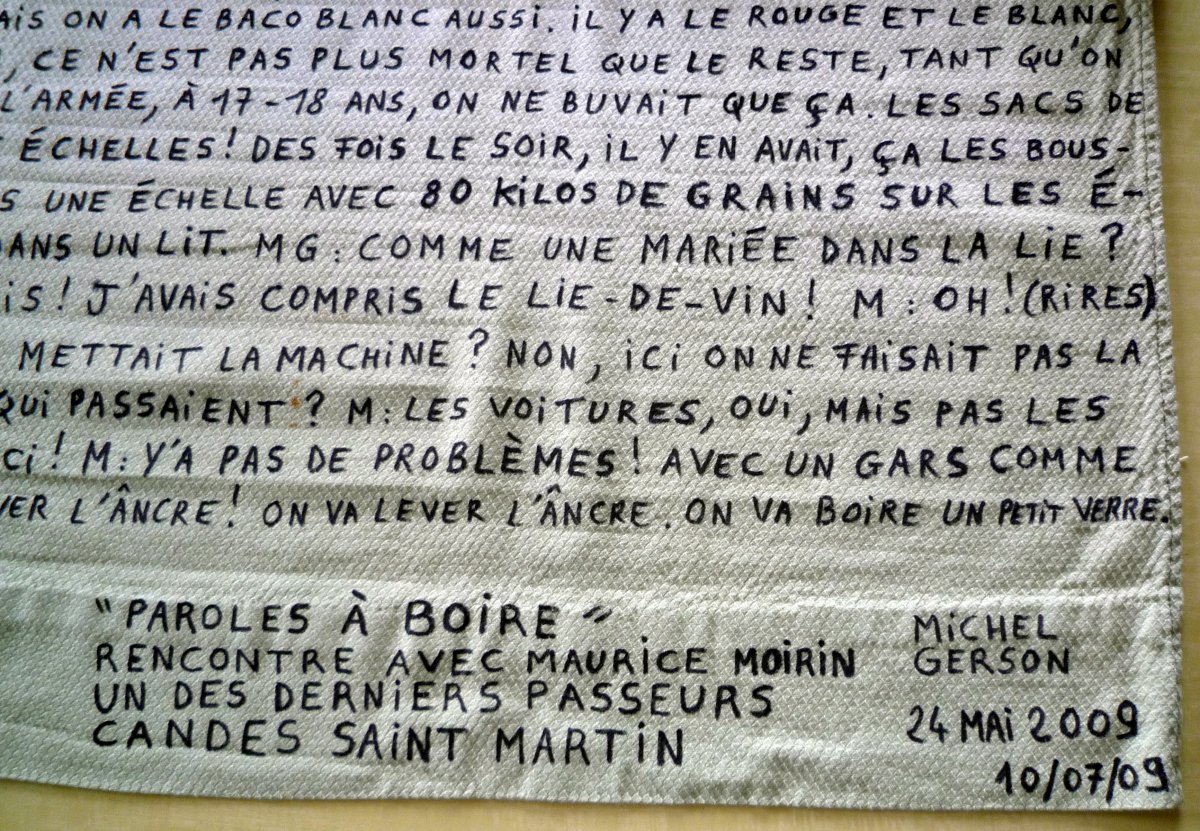 AIS ON A LE BACO BLANC AUSSI. IL Y A LE ROUGE ET LE BLANC,
, CE N'EST PAS PLUS MORTEL QUE LE RESTE, TANT QU'ON
L'ARMÉE, À 17-18 ANS, ON NE BUVAIT QUE ÇA. LES SACS DE
ÉCHELLES! DES FOIS LE SOIR, IL Y EN AVAIT, ÇA LES BOUS-
S UNE ÉCHELLE AVEC 80 KILOS DE GRAINS SUR LES É-
DANS UN LIT. MG: COMME UNE MARIÉE DANS LA LIE?
IS! J'AVAIS COMPRIS LE LIE-DE-VIN! M: OH! (RIRES)
METTAIT LA MACHINE? NON, ICI ON NE FAISAIT PAS LA
QUI PASSAIENT? M: LES VOITURES, OUI, MAIS PAS LES
CI! M: Y'A PAS DE PROBLÈMES! AVEC UN GARS COMME
VER L'ÂNCRE! ON VA LEVER L'ÂNCRE. ON VA BOIRE UN PETIT VERRE.
"PAROLES À BOIRE"
RENCONTRE AVEC MAURICE MOIRIN
UN DES DERNIERS PASSEURS
CANDES SAINT MARTIN
MICHEL
GERSON
24 MAI 2009
10/07/09